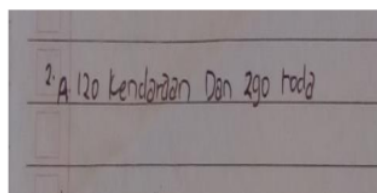 2. A. 120 kendaraan Dan 290 roda